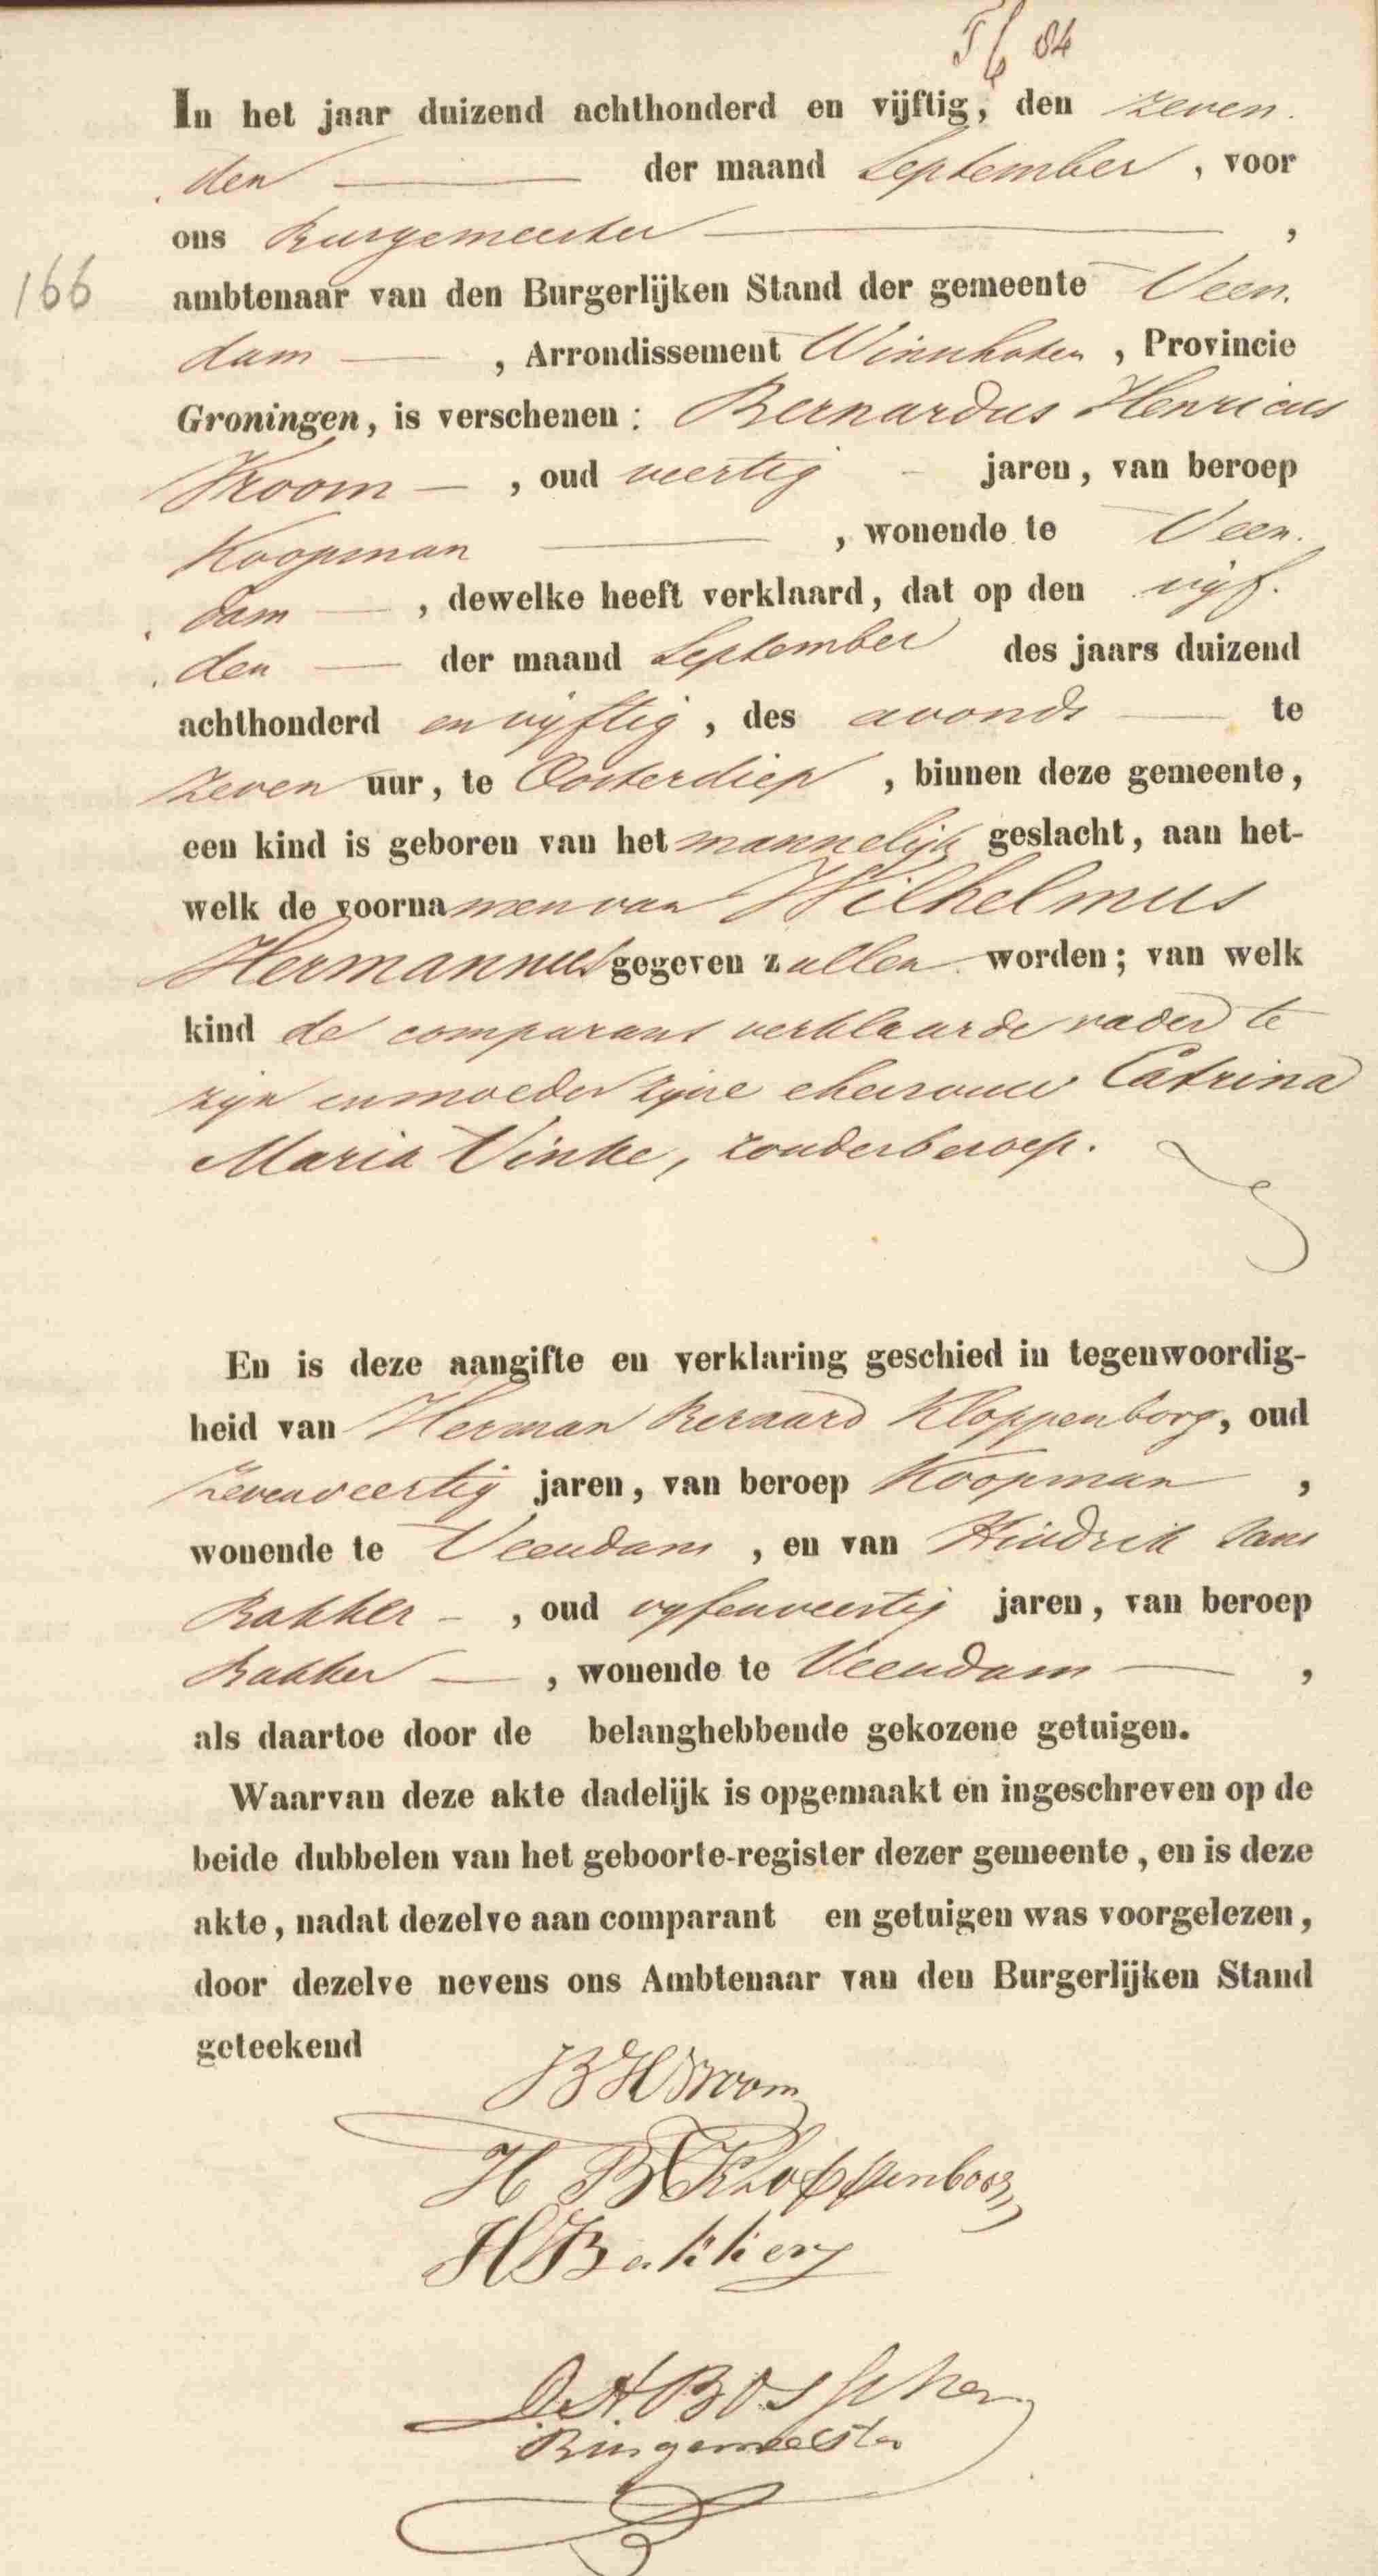 84
In het jaar duizend achthonderd en vijftig, den zeven
den der maand September, voor
ons Burgemeester,
166
ambtenaar van den Burgerlijken Stand der gemeente Veen
dam, Arrondissement Winschoten, Provincie
Groningen, is verschenen: Bernardus Henricus
Vroom, oud veertig jaren, van beroep
Koopman, wonende te Veen
dam, dewelke heeft verklaard, dat op den vijf
den der maand September des jaars duizend
achthonderd en vijftig, des avonds te
zeven uur, te Oosterdiep, binnen deze gemeente,
een kind is geboren van het mannelijk geslacht, aan het-
welk de voornamen van Wilhelmus
Hermannus gegeven zullen worden; van welk
kind de comparant verklaarde vader te
zijn en moeder zijne ehevrouw Catrina
Maria Vinke, zonder beroep.
En is deze aangifte en verklaring geschied in tegenwoordig-
heid van Herman Beraard Kloppenborg, oud
zevenveertig jaren, van beroep Koopman,
wonende te Veendam, en van Hindrik Jans
Bakker, oud vyfenveertig jaren, van beroep
Bakker, wonende te Veendam,
als daartoe door de belanghebbende gekozene getuigen.
Waarvan deze akte dadelijk is opgemaakt en ingeschreven op de
beide dubbelen van het geboorte-register dezer gemeente, en is deze
akte, nadat dezelve aan comparant en getuigen was voorgelezen,
door dezelve nevens ons Ambtenaar van den Burgerlijken Stand
geteekend
B H Vroom
H B Kloppenborg
H J Bakker
Bosscher
Burgemeester